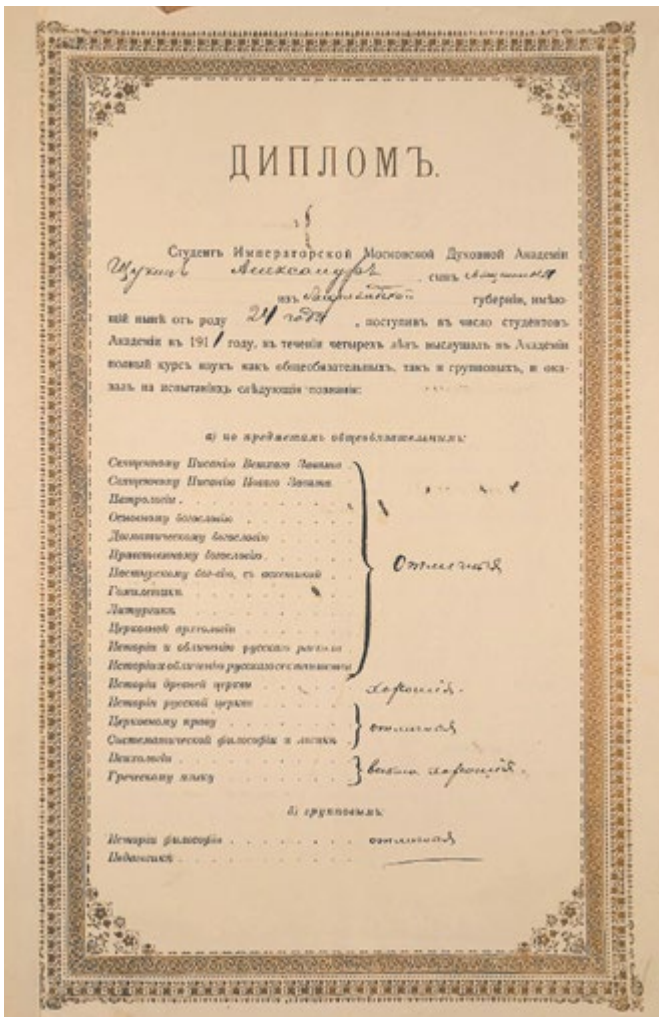 ДИПЛОМЪ.
Студентъ Императорской Московской Духовной Академіи
Щукинъ Александръ сынъ священника
изъ губерніи, имѣю-
щій нынѣ отъ роду 24 года, поступивъ въ число студентовъ
Академіи въ 1911 году, въ теченіи четырехъ лѣтъ выслушалъ въ Академіи
полный курсъ наукъ какъ общеобязательныхъ, такъ и групповыхъ, и ока-
залъ на испытаніяхъ слѣдующія познанія:
а) по предметамъ общеобязательнымъ:
Священному Писанію Ветхаго Завѣта
Священному Писанію Новаго Завѣта
Патрологіи
Основному богословію
Догматическому богословію
Нравственному богословію
Пастырскому бог-вію, съ аскетикой
Отличныя
Гомилетикѣ
Литургикѣ
Церковной археологіи
Исторіи и обличенію русскаго раскола
Исторіи и обличенію русскаго сектантства
Исторіи древней церкви хорошія.
Исторіи русской церкви
Церковному праву отличныя
Систематической философіи и логикѣ
Психологіи
весьма хорошія.
Греческому языку
б) групповымъ:
Исторіи философіи отличныя
Педагогикѣ